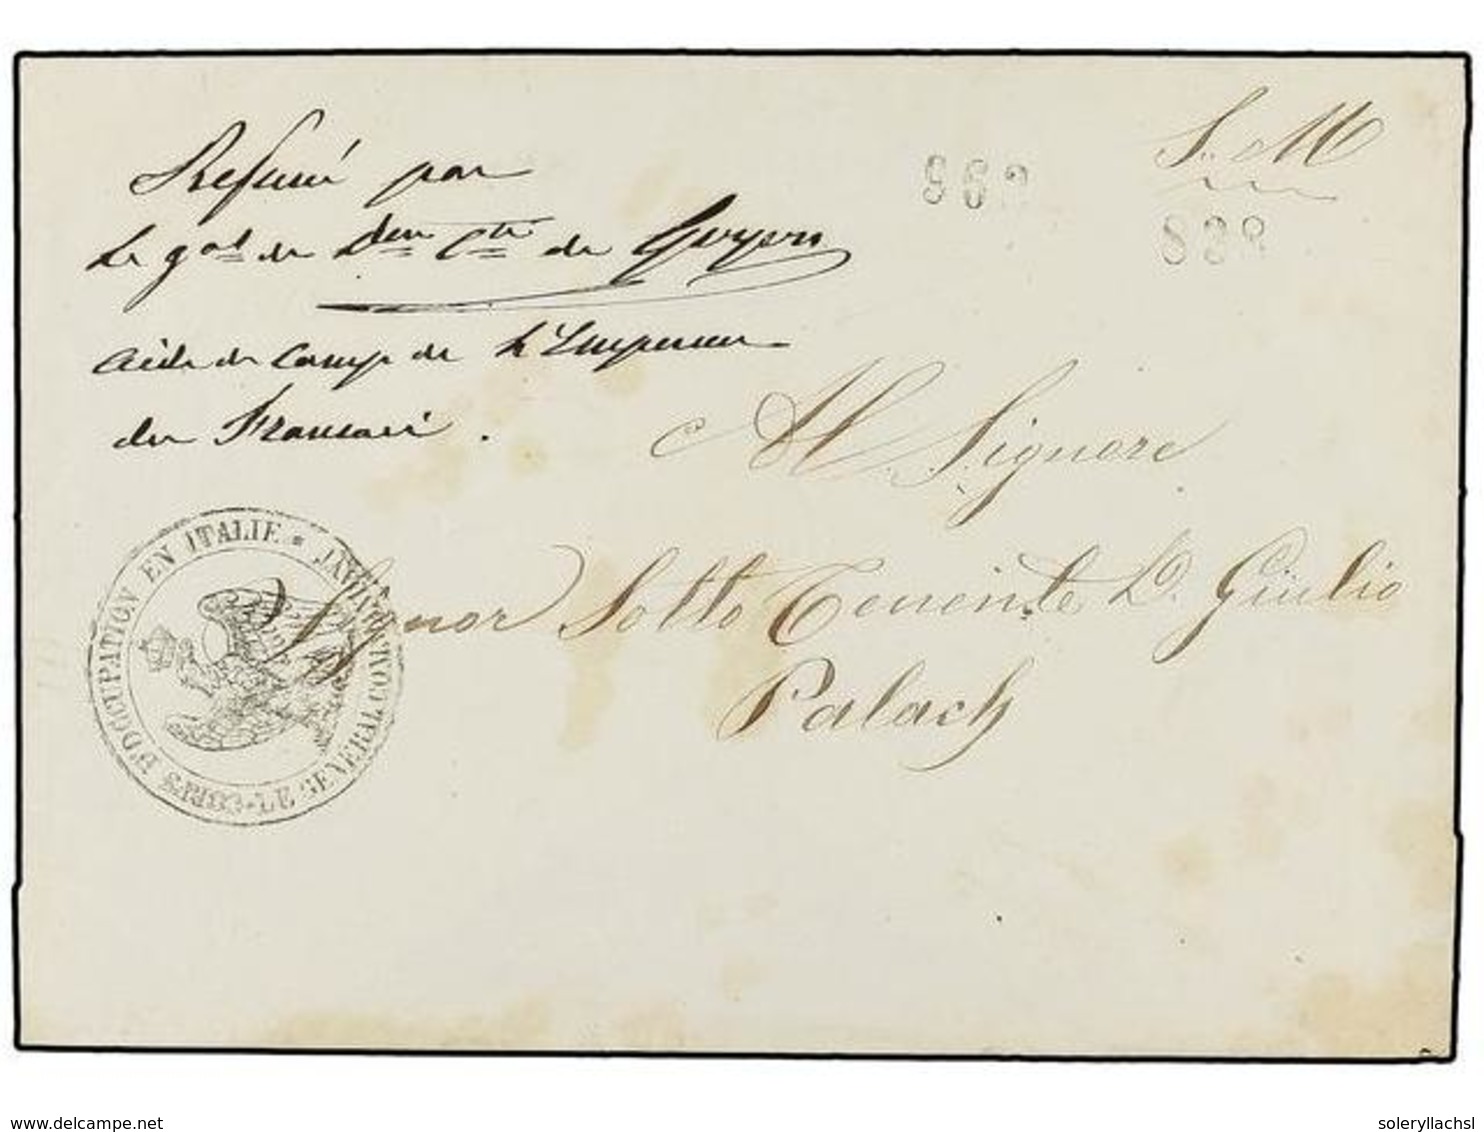 Refusé par
Le gal de Don Cte de Goyon
aide de Camp de L'Empereur
des Francais.
S. M
868
838
Al Signore
Signor Sotto Tenente D. Giulio
Palach
CORPS D'OCCUPATION EN ITALIE * LE GENERAL COMMANDANT
delcampe.net
soleryllachsl